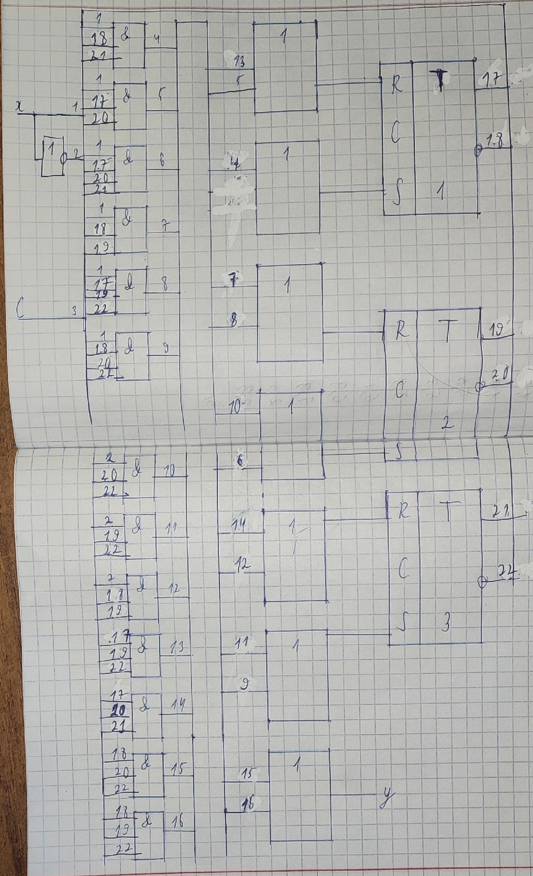 x 1
1 2
C 3
1 18 21 & 4
1 17 20 & 5
1 17 20 21 & 6
1 18 19 & 7
1 17 19 22 & 8
1 18 20 22 & 9
2 20 22 & 10
2 19 22 & 11
2 18 19 & 12
17 19 22 & 13
17 20 21 & 14
18 20 22 & 15
18 19 22 & 16
13 5 1
4 1
7 8 1
10 6 1
14 12 1
11 9 1
15 16 1 y
R T 17
C 18
S 1
R T 19
C 20
2
S
R T 21
C 22
S 3